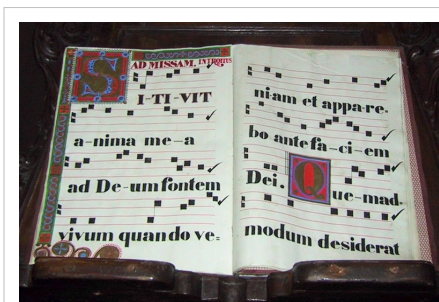 AD MISSAM. INTROITUS
SI-TI-VIT
a-nima me-a
ad De-um fontem
vivum quando ve=
niam et appa-re.
bo ante fa-ci-em
Dei. Que-mad.
modum desiderat